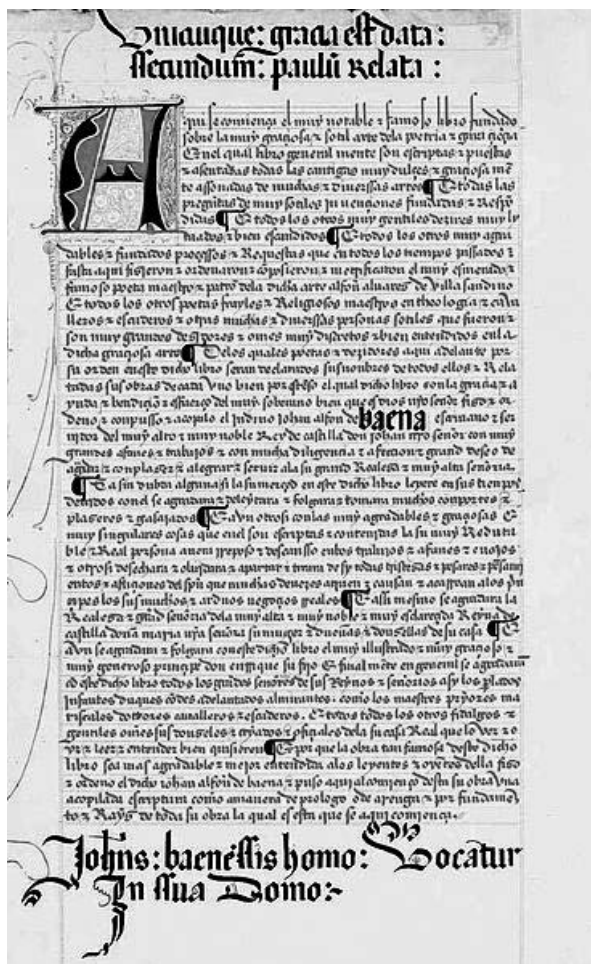 Vnicuique: gracia est data:
ssecundum: paulũ Relata:
Aqui se comiença el muy notable & famoso libro fundado
sobre la muy graçiosa & sotil arte dela poetria & gaya çiençia
En el qual libro general mente son escriptas & puestas
& asentadas todas las cantigas muy dulçes & graçiosa mẽ
te assonadas de muchas & diuerssas artes ¶ E todas las
preguntas de muy sotiles inuenciones fundadas & Respõ
didas ¶ E todos los otros muy gentiles dezires muy ly
mados & bien escandidos ¶ E todos los otros muy agra
dables & fundados proçessos & Requestas que en todos los tienpos passados
fasta aqui fisieron & ordenaron & conpusieron & metrificaron el muy esmerado &
famoso poeta maestro & patrõ dela dicha arte alfõn aluares de villa sandino
E todos los otros poetas frayles & Religiosos maestros en theologia & caua
lleros & escuderos & otras muchas & diuerssas personas sotiles que fueron &
son muy grandes desidores & omes muy discretos & bien entendidos enla
dicha graçiosa arte ¶ Delos quales poetas & dezidores aqui adelante por
su orden eneste dicho libro seran declarados sus nonbres de todos ellos & Rela
tadas sus obras de cada vno bien por estẽso el qual dicho libro con la graçia & a
yuda & bendiçiõ & esfuerço del muy soberano bien que es dios nr̃o señor fiso & or
deno & conpuso & acopilo el indino Johan alfon de baena escriuano & ser
uidor del muy alto & muy noble Rey de castilla don Johan nr̃o señor con muy
grandes afanes & trabajos & con mucha diligençia & afecçion & grand deseo de
agradar & conplaser & alegrar & seruir ala su grand Realesa & muy alta señoria
¶ Ca sin dubda alguna si la su merçed en este dicho libro leyere en sus tienpos
deuidos con el se agradara & deleytara & folgara & tomara muchos comportes &
plaseros & gasajados ¶ E avn otrosi con las muy agradables & graçiosas E
muy singulares cosas que enel son escriptas & contenidas la su muy Reduta
ble & Real persona auera rreposo & descanssso enlos trabajos & afanes & enojos
& otrosi desechara & oluidara & apartara & tirara de sy todas tristesas & pesares & pensami
entos & afliçiones del spũ que muchas de veses atraen & causan & acarrean alos prin
cipes los sus muchos & arduos negoçios Reales ¶ E assi mesmo se agradara la
Realesa & grãd señoria dela muy alta & muy noble & muy esclaresçida Reyna de
castilla doña maria nr̃a señora su muger & dueñas & donsellas de su casa ¶ E
avn se agradara & folgara con este dicho libro el muy illustrado & muy graçioso &
muy generoso prinçipe don enrrique su fijo E final mẽte en general se agradarã
cõ este dicho libro todos los grãdes señores de sus Reynos & señorios asy los plados
infantes duques cõdes adelantados almirantes. como los maestres pryores ma
riscales dottores caualleros & escuderos. E todos todos los otros fidalgos &
gentiles omes sus donseles & cryados & ofiçiales dela su casa Real que lo ver & o
yr & leer & entender bien quisieren ¶ E por que la obra tan famosa deste dicho
libro sea mas agradable & mejor entendida alos leyentes & oyentes della fiso
& ordeno el dicho iohan alfon de baena & puso aqui al comienço desta su obra vna
acopilada escriptura como amanera de prologo o de arenga & por fundamẽ
to & Rays de toda su obra la qual es esta que se aqui comiença.
Johñs: baenẽssis homo: Vocatur
In ssua Domo:~